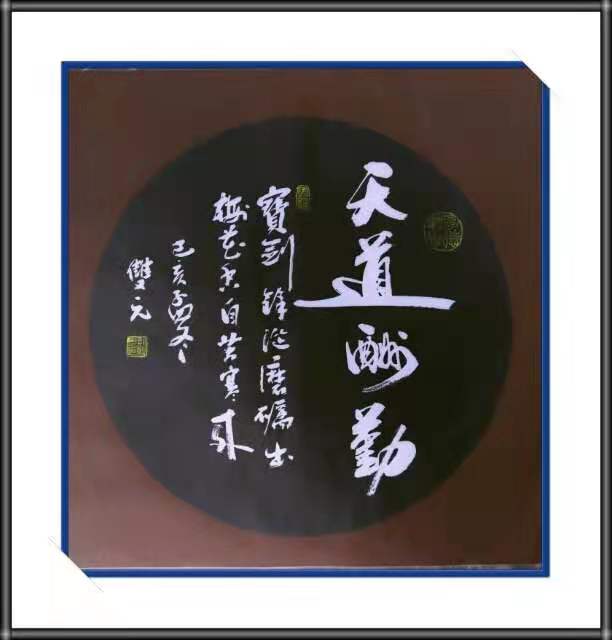 天道酬勤
寶劍鋒從磨礪出
梅花香自苦寒來
己亥孟冬
雙元